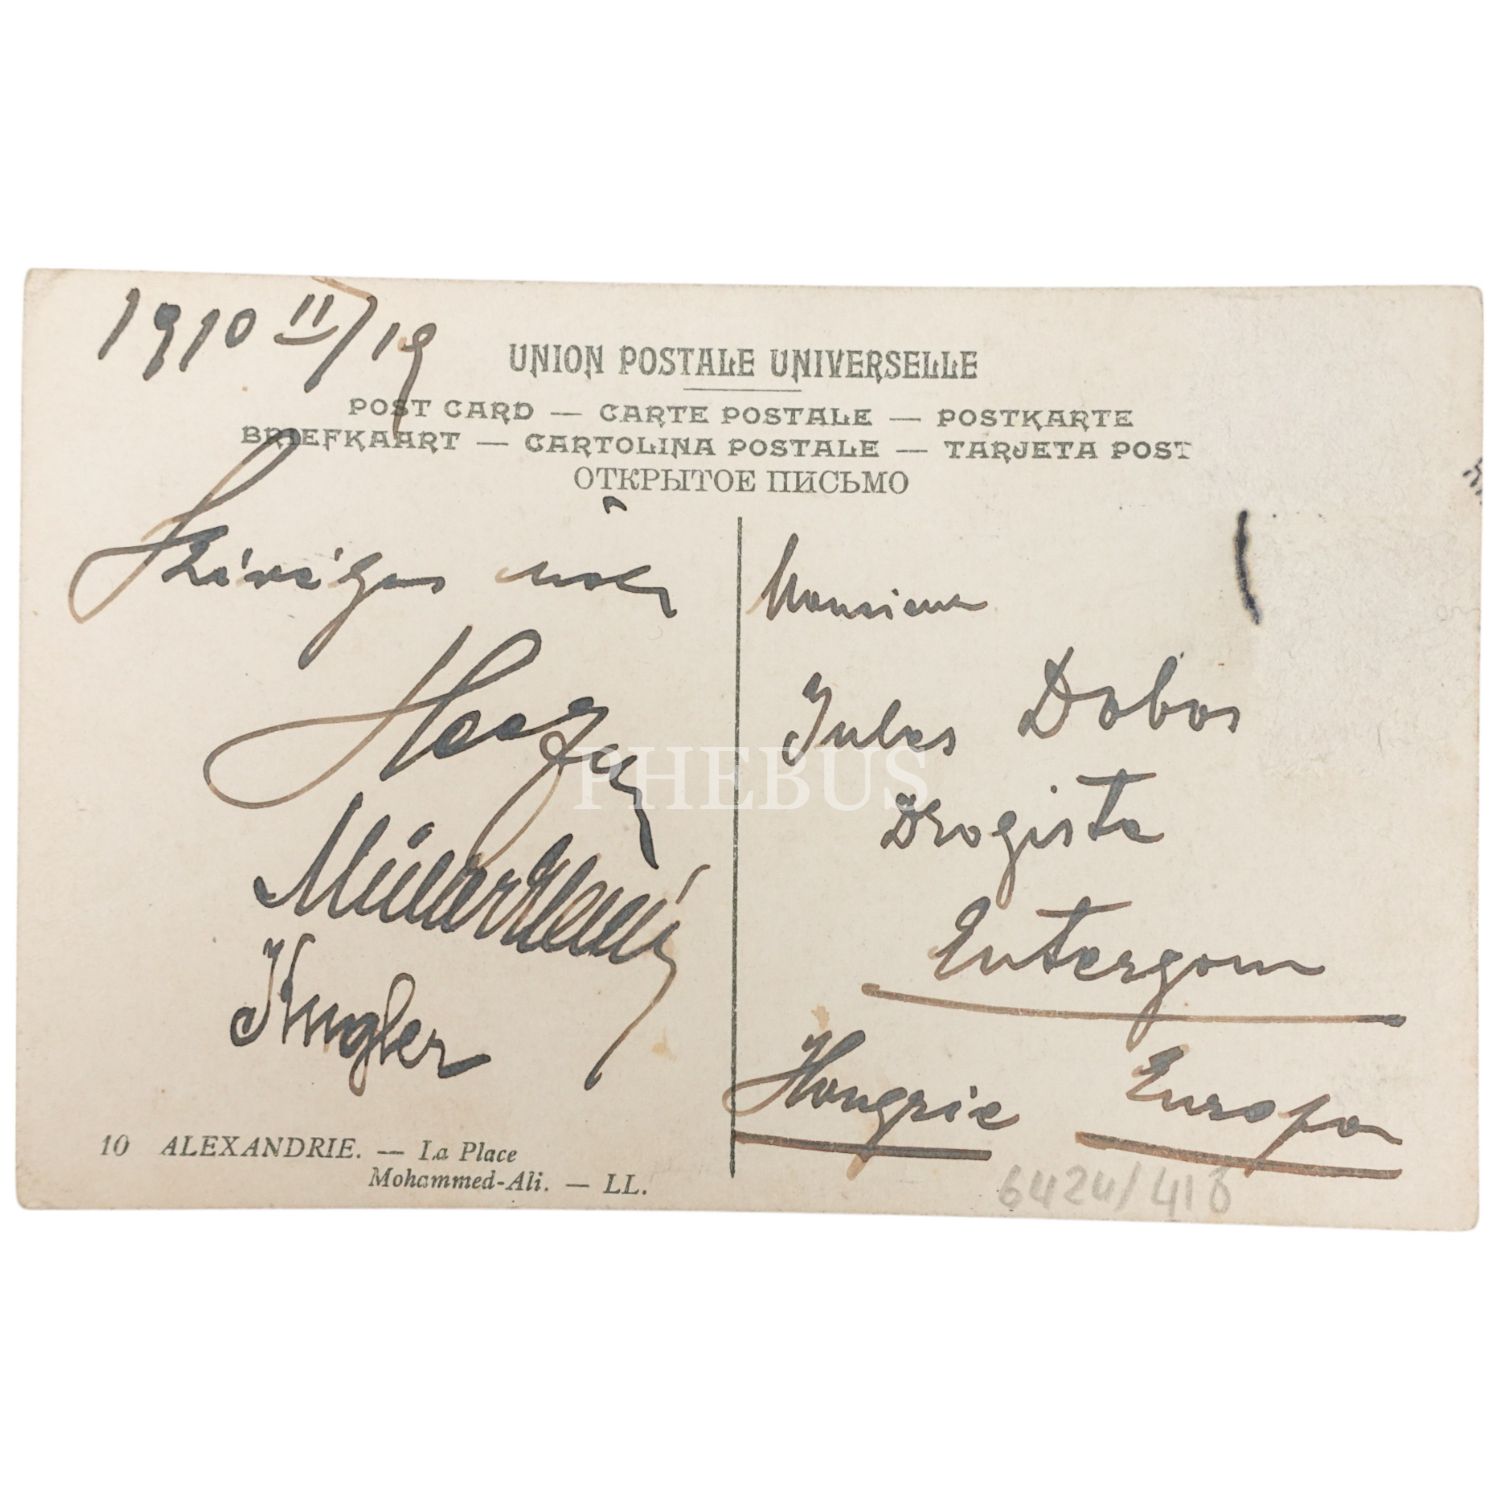 1910 II/19
UNION POSTALE UNIVERSELLE
POST CARD — CARTE POSTALE — POSTKARTE
BRIEFKAART — CARTOLINA POSTALE — TARJETA POST
ОТКРЫТОЕ ПИСЬМО
Szívélyes üdv
Müller
Kugler
Monsieur
Jules Dobos
Drogista
Entergom
Hongrie Europa
10 ALEXANDRIE. — La Place
Mohammed-Ali. — LL.
6424/418
PHEBUS